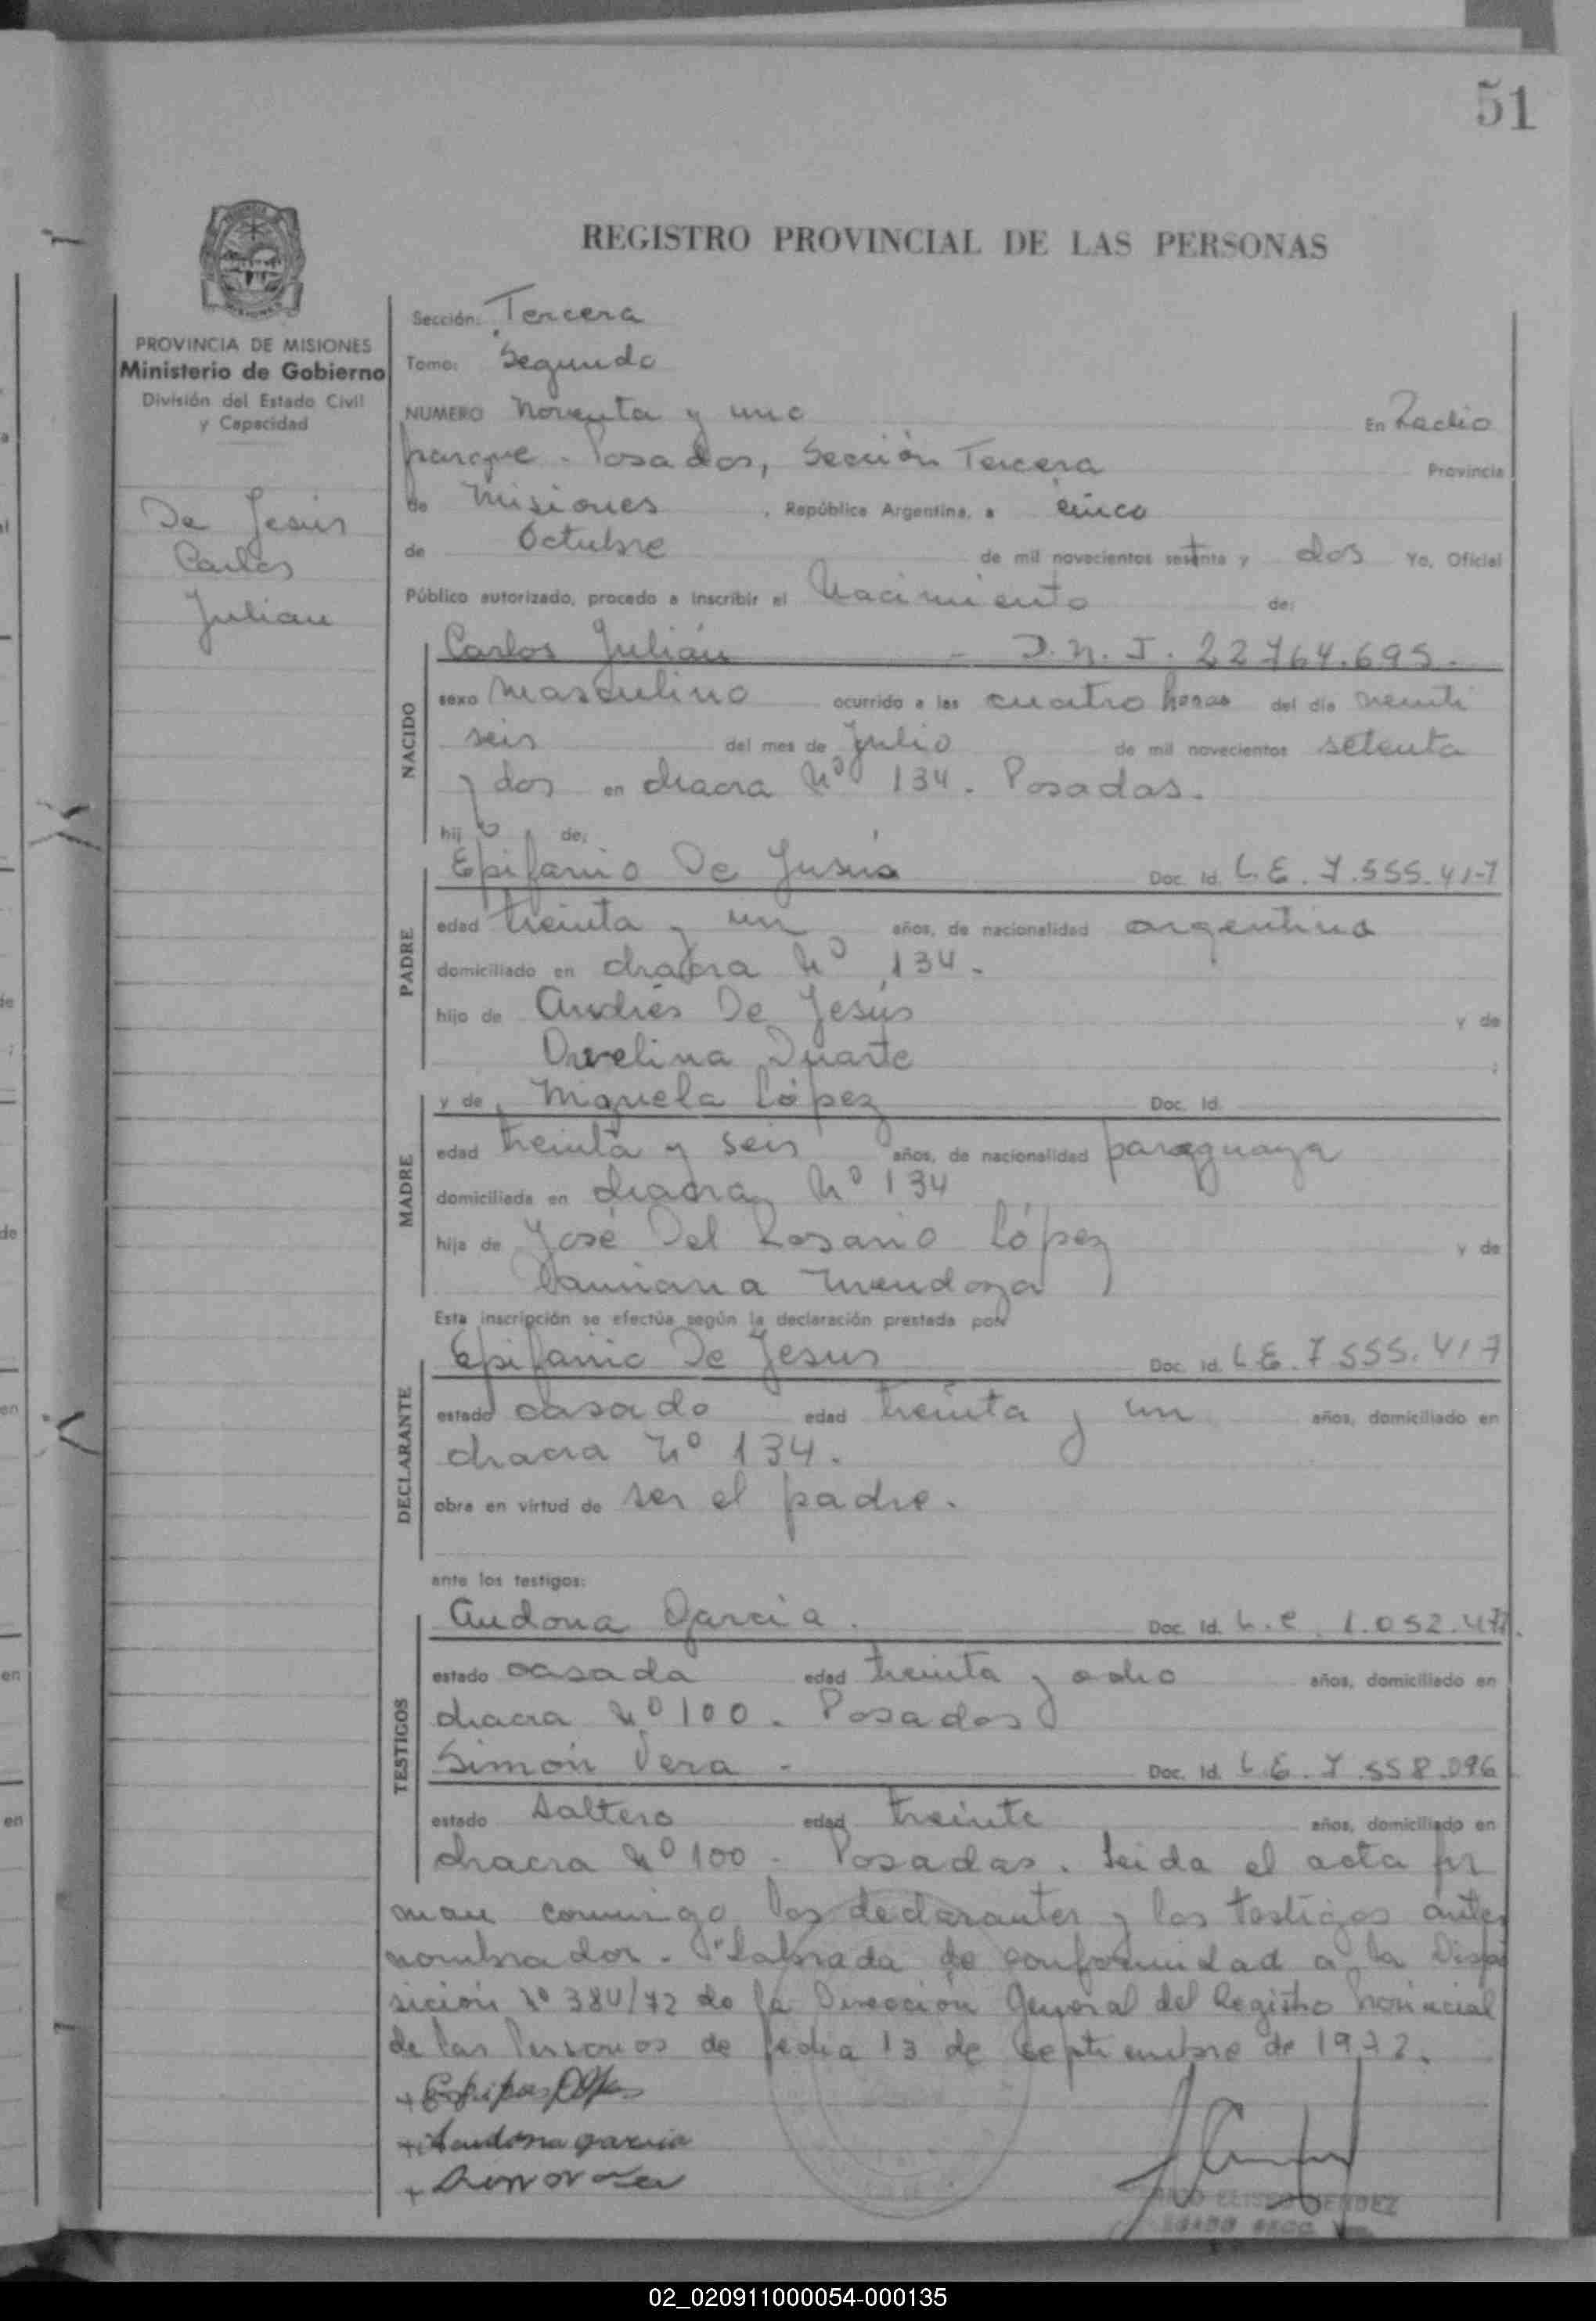 51
REGISTRO PROVINCIAL DE LAS PERSONAS
PROVINCIA DE MISIONES
Ministerio de Gobierno
División del Estado Civil
y Capacidad
De Jesús
Carlos
Julian
Sección: Tercera
Tomo: Segundo
NUMERO Noventa y uno En Radio
parque - Posadas, Sección Tercera Provincia
de Misiones, República Argentina, a cinco
de Octubre de mil novecientos setenta y dos Yo, Oficial
Público autorizado, procedo a inscribir el Nacimiento de:
NACIDO
Carlos Julián - D.N.I. 22764.695.
sexo Masculino ocurrido a las cuatro horas del día veinti
seis del mes de Julio de mil novecientos setenta
y dos en chacra Nº 134. Posadas.
hijo de:
PADRE
Epifanio De Jesús Doc. Id. L.E. 7.555.417
edad treinta y un años, de nacionalidad argentino
domiciliado en chacra Nº 134.
hijo de Andrés De Jesús y de
Duarte
MADRE
y de Miguela López Doc. Id.
edad treinta y seis años, de nacionalidad paraguaya
domiciliada en chacra Nº 134
hija de José Del Rosario López y de
Damiana Mendoza
Esta inscripción se efectúa según la declaración prestada por
DECLARANTE
Epifanio De Jesus Doc. Id. L.E. 7.555.417
estado casado edad treinta y un años, domiciliado en
chacra Nº 134.
obra en virtud de ser el padre.
ante los testigos:
TESTIGOS
Andona Garcia. Doc. Id. L.C. 1.052.477.
estado casada edad treinta y ocho años, domiciliado en
chacra Nº 100. Posadas
Simón Vera - Doc. Id. L.E. 7.558.096
estado soltero edad treinta años, domiciliado en
chacra Nº 100 - Posadas. Leida el acta fir
man conmigo los declarantes y los testigos antes
nombrados. Labrada de conformidad a la Dispo
sición Nº 380/72 de la Dirección General del Registro Provincial
de las Personas de fecha 13 de septiembre de 1972.
Andona garcia
ELISEO MENDEZ
02_020911000054-000135